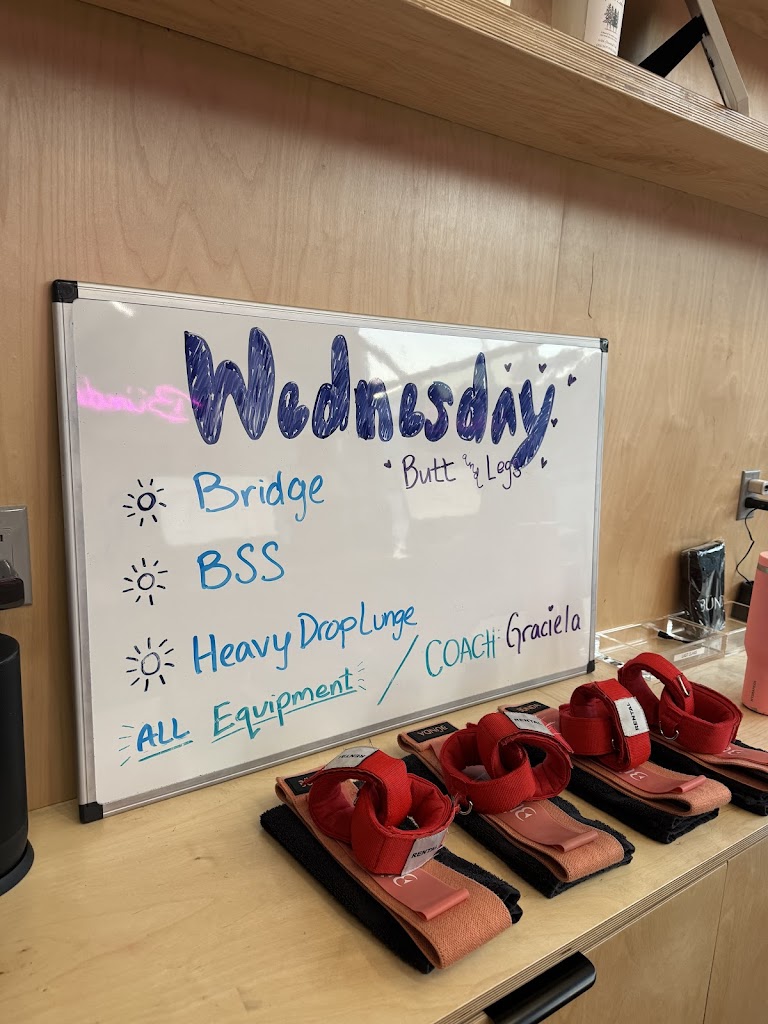 Wednesday
Butt and Legs
Bridge
BSS
Heavy Drop Lunge
ALL Equipment / COACH: Graciela
RENTAL
RENTAL
RENTAL